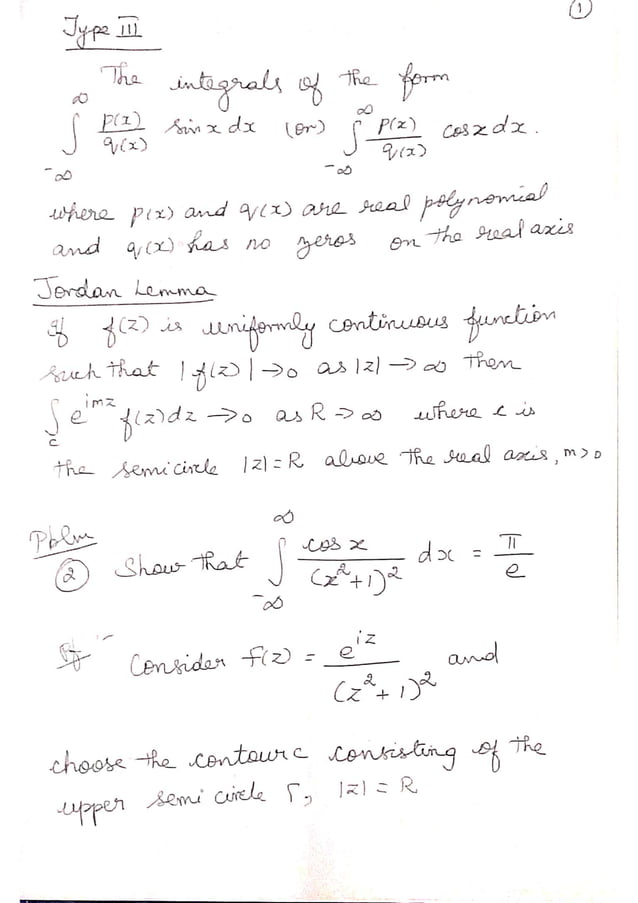 ①
Type III
The integrals of the form
∫_{-∞}^{∞} p(x)/q(x) sin x dx (or) ∫_{-∞}^{∞} p(x)/q(x) cos x dx.
where p(x) and q(x) are real polynomial
and q(x) has no zeros on the real axis
Jordan Lemma
If f(z) is uniformly continuous function
such that |f(z)| → 0 as |z| → ∞ then
∫_c e^{imz} f(z) dz → 0 as R → ∞ where c is
the semicircle |z| = R above the real axis, m>0
Pblm
② Show that ∫_{-∞}^{∞} cos x/(x²+1)² dx = π/e
Consider f(z) = e^{iz}/(z²+1)² and
choose the contour c consisting of the
upper semi circle Γ, |z| = R